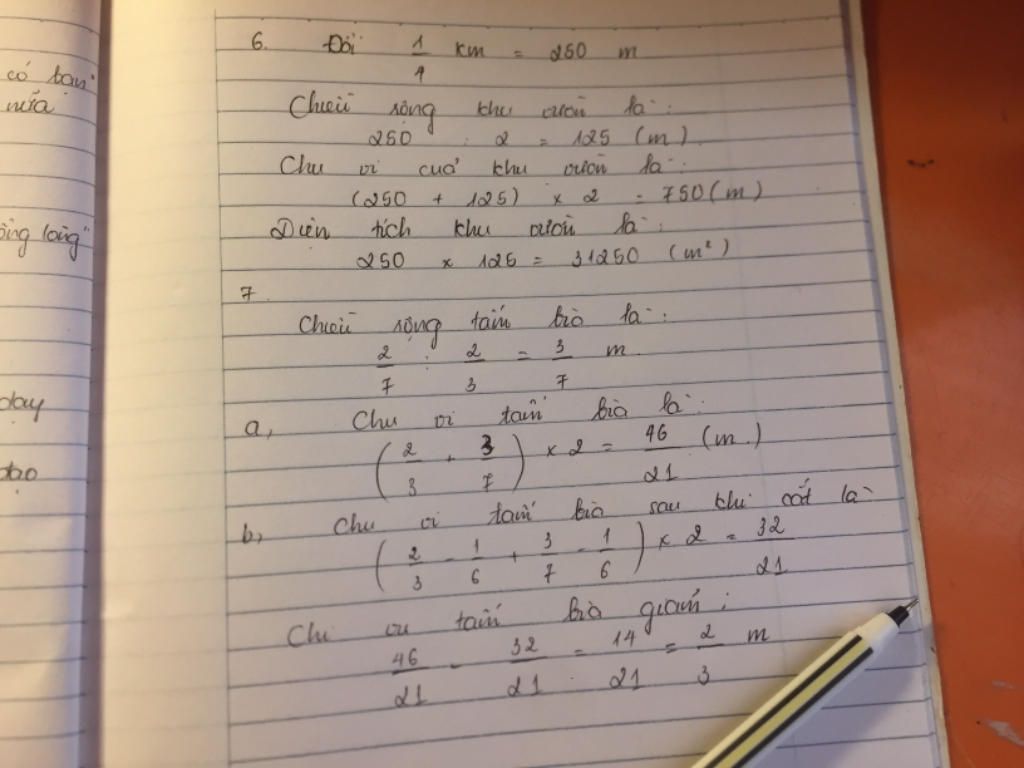 có bạn
nữa
ông lòng"
day
dao
6. Đổi 1/4 km = 250 m
Chiều rộng khu vườn là:
250 : 2 = 125 (m)
Chu vi của khu vườn là:
(250 + 125) × 2 = 750 (m)
Diện tích khu vườn là:
250 × 125 = 31250 (m²)
7.
Chiều rộng tấm bìa là:
2/7 : 2/3 = 3/7 m
a, Chu vi tấm bìa là:
(2/3 + 3/7) × 2 = 46/21 (m)
b, Chu vi tấm bìa sau khi cắt là
(2/3 - 1/6 + 3/7 - 1/6) × 2 = 32/21
Chi vu tấm bìa giảm:
46/21 - 32/21 = 14/21 = 2/3 m